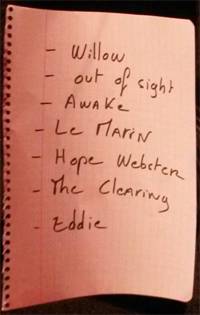 - Willow
- out of sight
- Awake
- Le Marin
- Hope Webster
- The Clearing
- Eddie